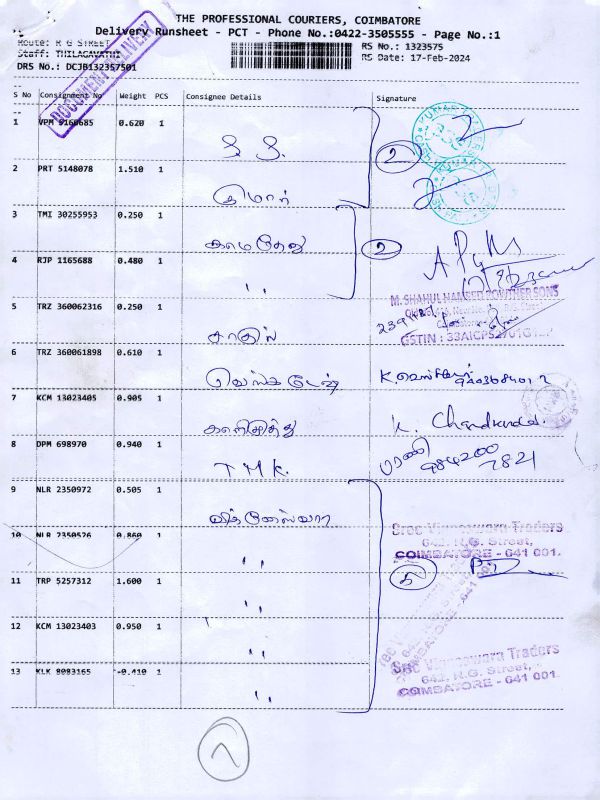 THE PROFESSIONAL COURIERS, COIMBATORE
Delivery Runsheet - PCT - Phone No.:0422-3505555 - Page No.:1
Route: R G STREET
RS No.: 1323575
Staff: THILAGAVATHI
RS Date: 17-Feb-2024
DRS No.: DCJB132357501
DOCUMENT DELIVERY
S No Consignment No Weight PCS Consignee Details Signature
1 VPM 0.620 1 S. S.
2 PRT 5148078 1.510 1 குமார் 2
3 TMI 30255953 0.250 1 காமதேனு 2
4 RJP 1165688 0.480 1 ''
M. SHAHUL HAMEED ROWTHER SONS
5 TRZ 360062316 0.250 1
6 TRZ 360061898 0.610 1 வெங்கடேஷ்
7 KCM 13023405 0.905 1 K. Chandra
8 DPM 698970 0.940 1 T M K. பரணி 984200 7821
9 NLR 2350972 0.505 1
10 NLR 2350526 0.860 1 ''
Sree Vigneswara Traders
642, N.G. Street,
COIMBATORE - 641 001.
11 TRP 5257312 1.600 1 ''
12 KCM 13023403 0.950 1 ''
Sree Vigneswara Traders
642, N.G. Street,
COIMBATORE - 641 001.
13 KLK 8083165 -0.410 1 ''
7